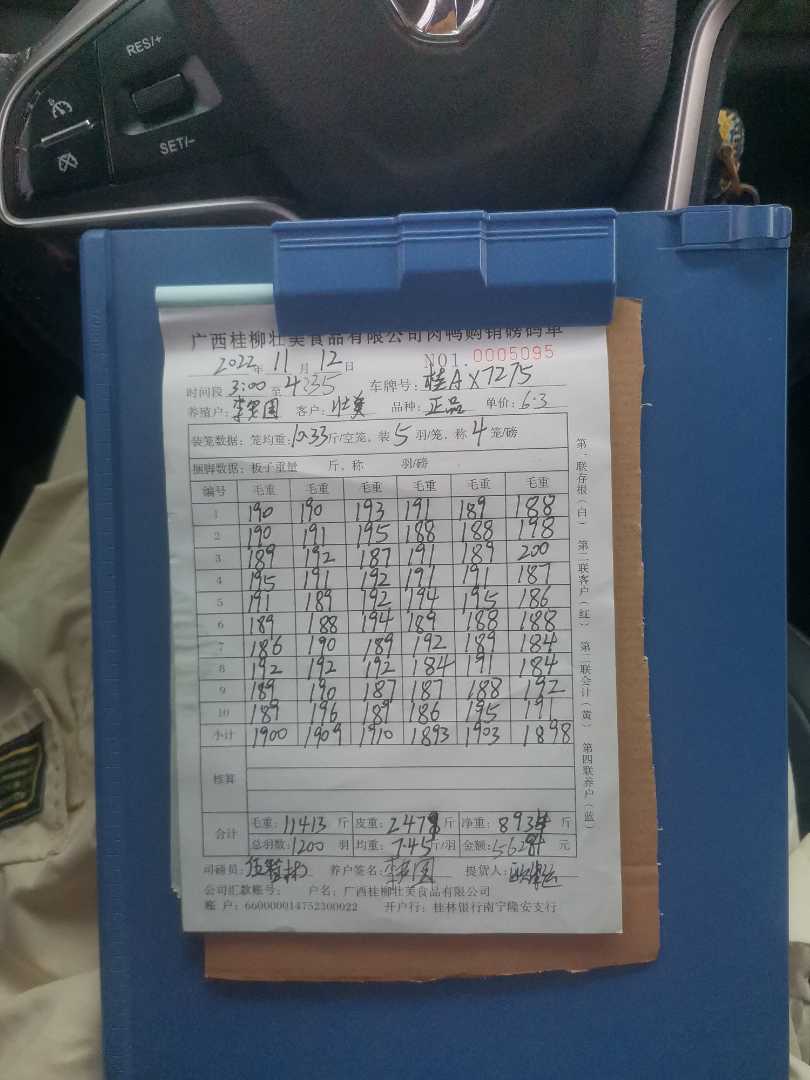 RES/+
SET/-
广西桂柳壮美食品有限公司肉鸭购销磅码单
2022年 11月 12日 NO1. 0005095
时间段 3:00 至 4:35 车牌号: 桂AX7275
养殖户: 客户: 壮美 品种: 正品 单价: 6.3
装笼数据: 笼均重: 10.33斤/空笼、装 5 羽/笼、称 4 笼/磅
捆脚数据: 板子重量 斤、称 羽/磅
编号 毛重 毛重 毛重 毛重 毛重 毛重
1 190 190 193 191 189 188
2 190 191 195 188 188 198
3 189 192 187 191 189 200
4 195 191 192 191 191 187
5 191 189 192 194 195 186
6 189 188 194 189 188 188
7 186 190 189 192 189 184
8 192 192 192 184 191 184
9 189 190 187 187 188 192
10 189 196 189 186 195 191
小计 1900 1909 1910 1893 1903 1898
核算
合计 毛重: 11413 斤 皮重: 斤 净重: 斤
总羽数: 1200 羽 均重: 7.45斤/羽 金额: 元
司磅员: 养户签名: 提货人:
公司汇款账号: 户名: 广西桂柳壮美食品有限公司
账户: 660000014752300022 开户行: 桂林银行南宁隆安支行
第一联存根(白) 第二联客户(红) 第三联会计(黄) 第四联养户(蓝)